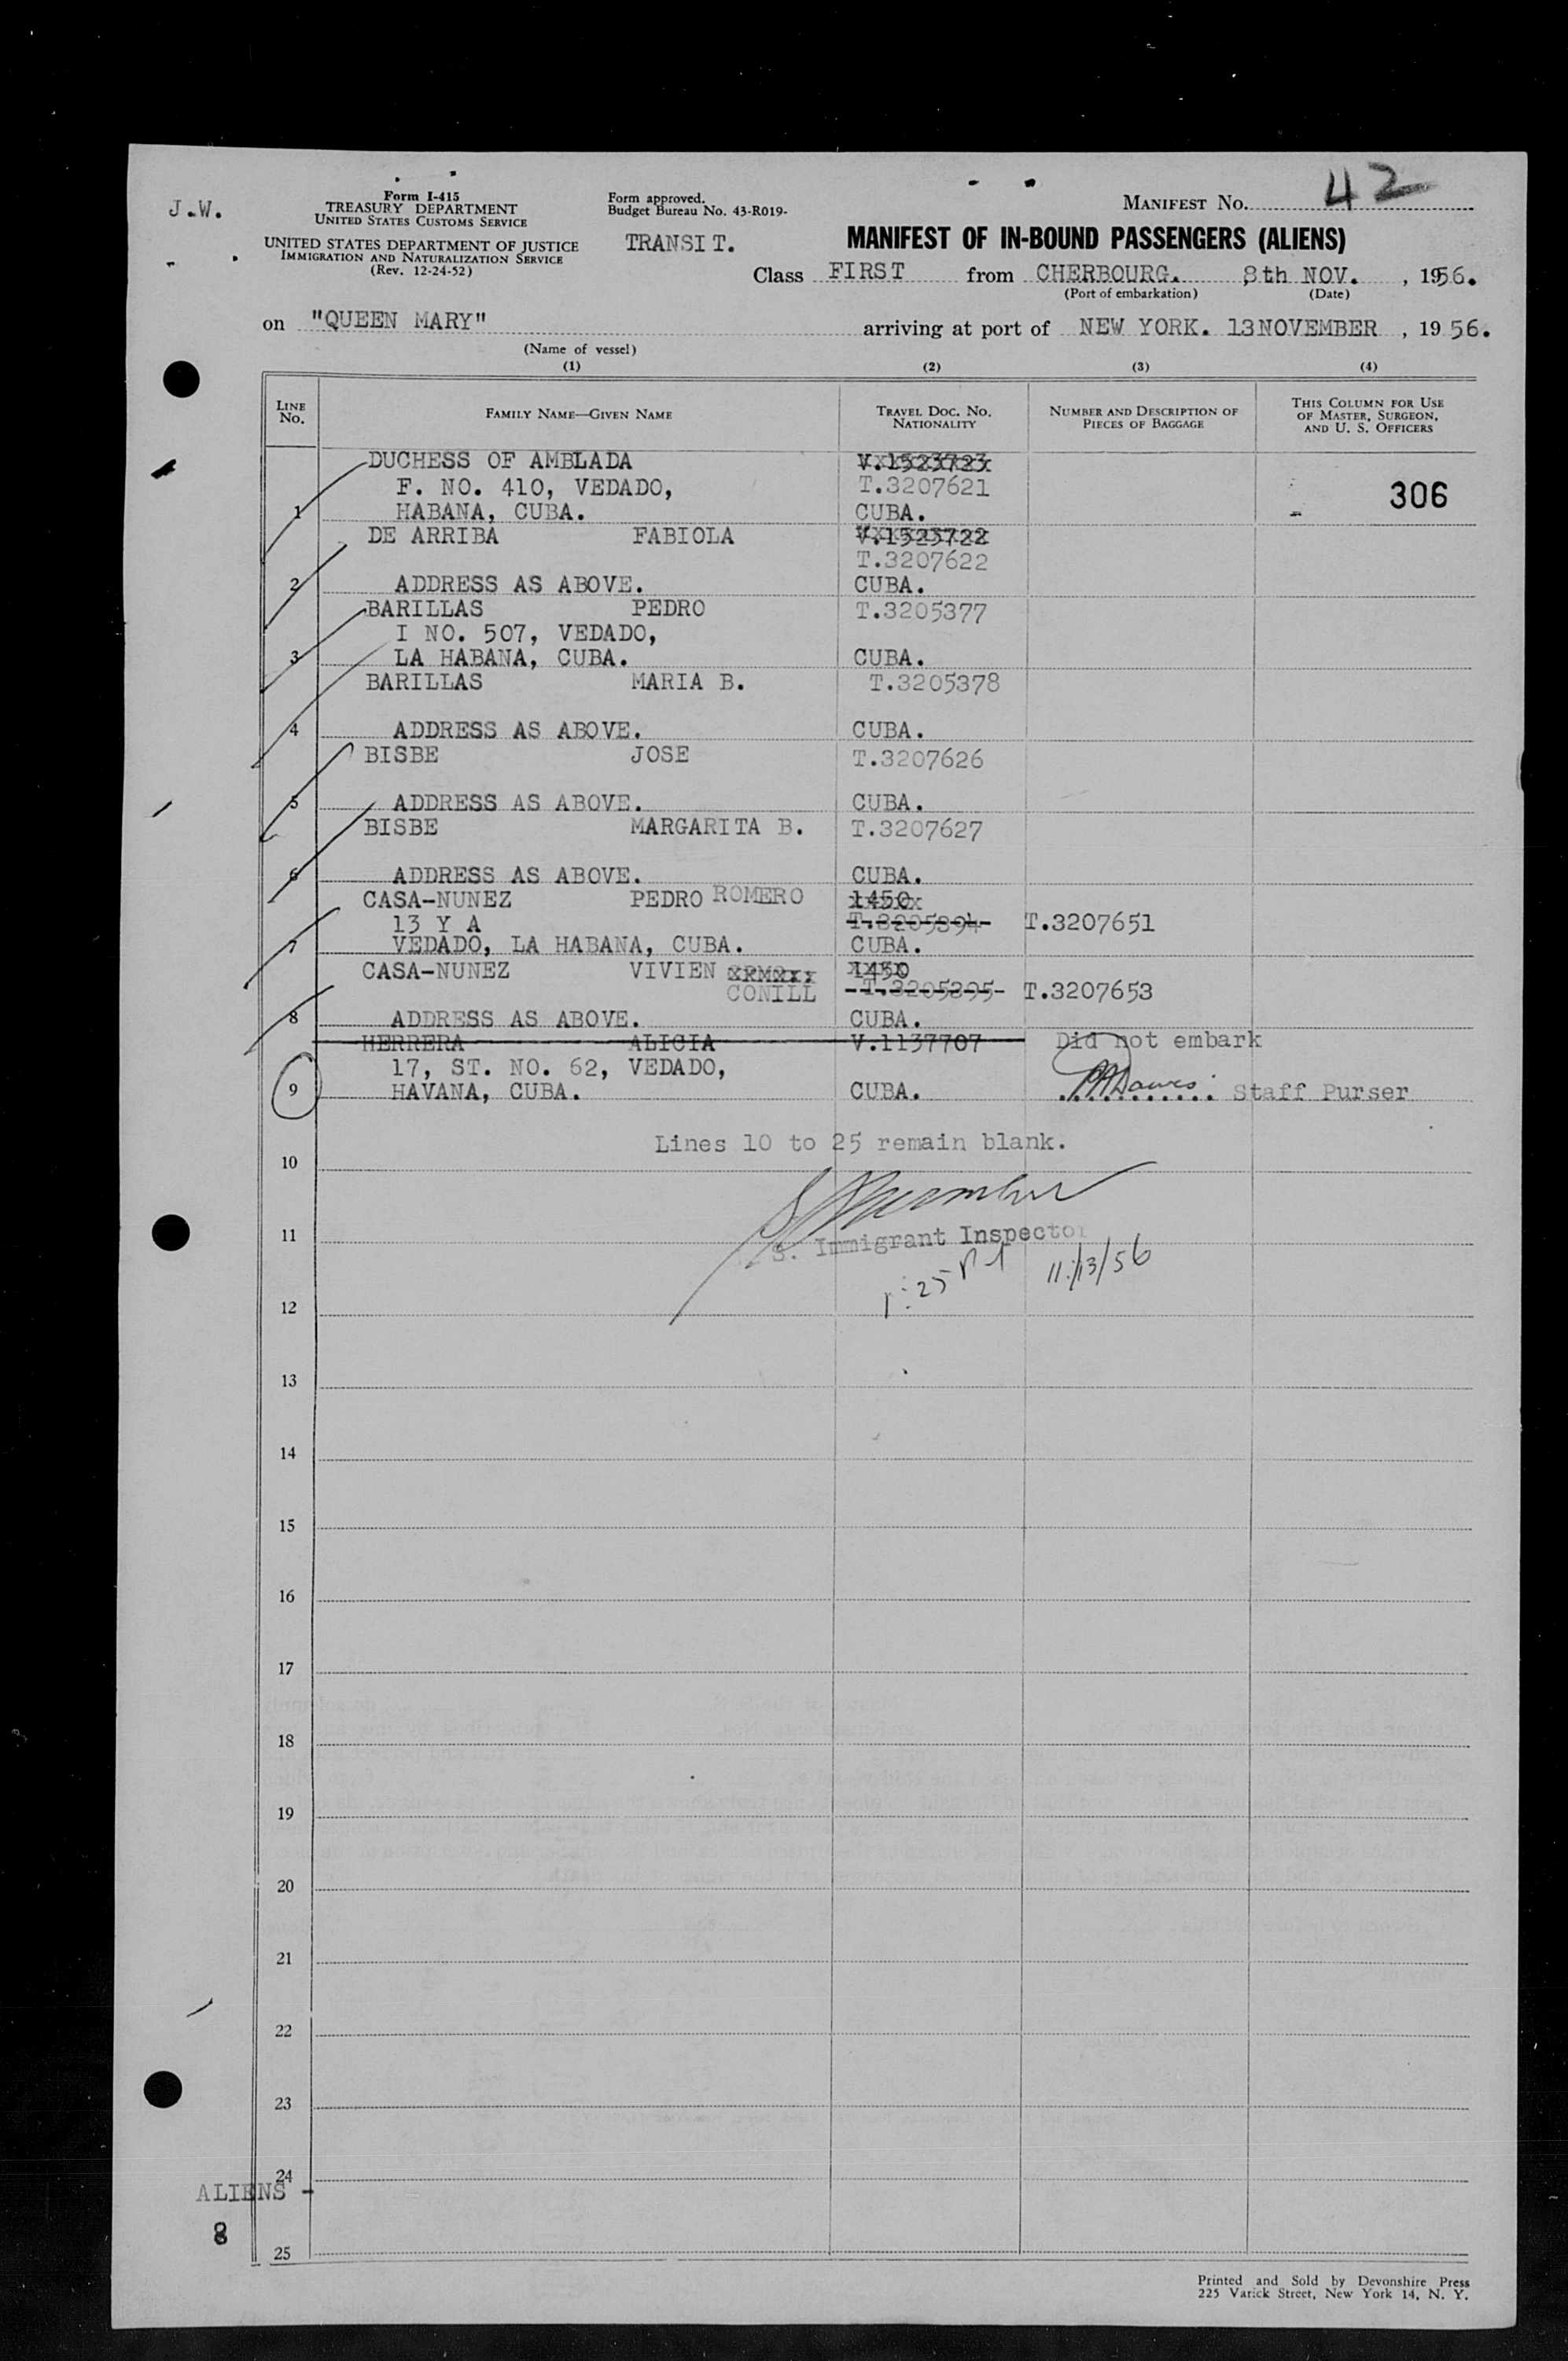 J.W.
Form I-415
TREASURY DEPARTMENT
UNITED STATES CUSTOMS SERVICE
UNITED STATES DEPARTMENT OF JUSTICE
IMMIGRATION AND NATURALIZATION SERVICE
(Rev. 12-24-52)
Form approved.
Budget Bureau No. 43-R019-
TRANSIT.
MANIFEST NO. 42
MANIFEST OF IN-BOUND PASSENGERS (ALIENS)
Class FIRST from CHERBOURG. 8th NOV. , 1956.
(Port of embarkation) (Date)
on "QUEEN MARY" arriving at port of NEW YORK. 13 NOVEMBER , 19 56.
(Name of vessel)
(1) (2) (3) (4)
LINE NO. FAMILY NAME—GIVEN NAME TRAVEL DOC. NO. NATIONALITY NUMBER AND DESCRIPTION OF PIECES OF BAGGAGE THIS COLUMN FOR USE OF MASTER, SURGEON, AND U. S. OFFICERS
DUCHESS OF AMBLADA V.1523723
F. NO. 410, VEDADO, T.3207621 306
1 HABANA, CUBA. CUBA.
DE ARRIBA FABIOLA V.1523722
T.3207622
2 ADDRESS AS ABOVE. CUBA.
BARILLAS PEDRO T.3205377
I NO. 507, VEDADO,
3 LA HABANA, CUBA. CUBA.
BARILLAS MARIA B. T.3205378
4 ADDRESS AS ABOVE. CUBA.
BISBE JOSE T.3207626
5 ADDRESS AS ABOVE. CUBA.
BISBE MARGARITA B. T.3207627
6 ADDRESS AS ABOVE. CUBA.
CASA-NUNEZ PEDRO ROMERO 1450
13 Y A T.3205394 T.3207651
7 VEDADO, LA HABANA, CUBA. CUBA.
CASA-NUNEZ VIVIEN 1450
CONILL T.3205395 T.3207653
8 ADDRESS AS ABOVE. CUBA.
HERRERA ALICIA V.1137707 Did not embark
17, ST. NO. 62, VEDADO,
9 HAVANA, CUBA. CUBA. Staff Purser
Lines 10 to 25 remain blank.
10
11 S. Immigrant Inspector
1:25 PM 11/13/56
12
13
14
15
16
17
18
19
20
21
22
23
24
ALIENS -
8
25
Printed and Sold by Devonshire Press
225 Varick Street, New York 14, N. Y.